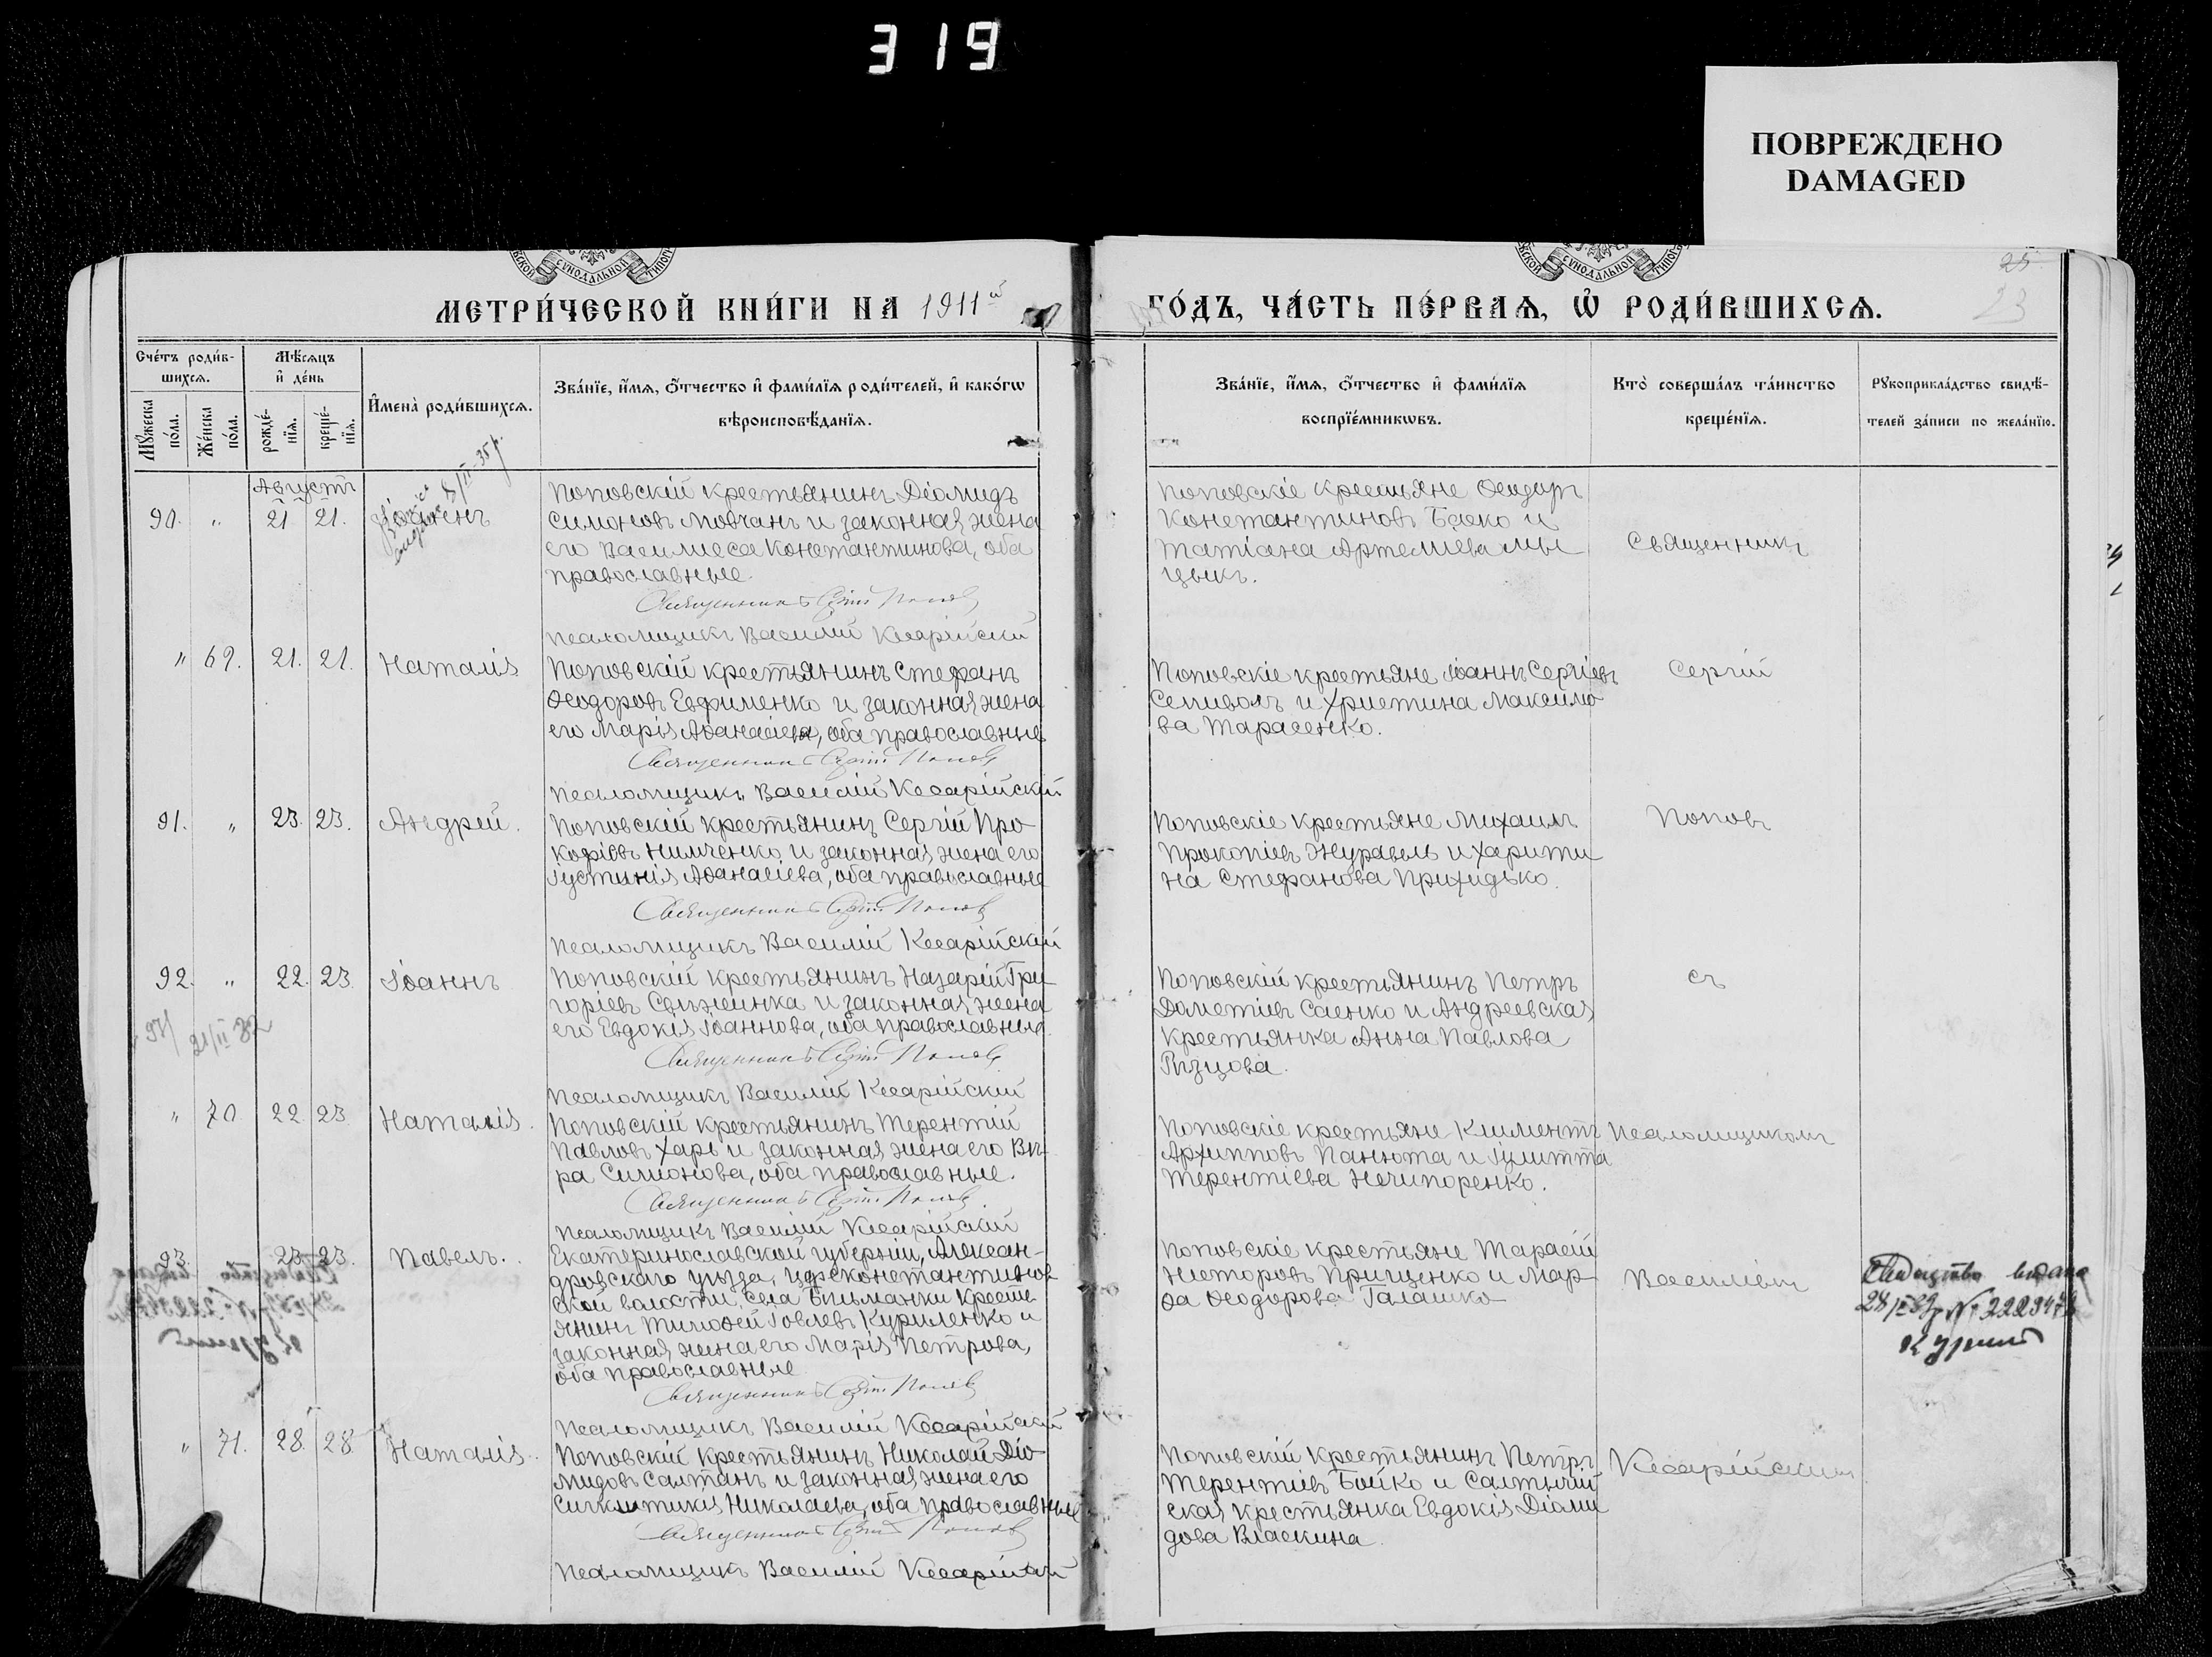 319
ПОВРЕЖДЕНО
DAMAGED
СУНОДАЛЬНОЙ
СУНОДАЛЬНОЙ
25
23
МЕТРИ́ЧЕСКОЙ КНИ́ГИ НА 1911й
ГО́ДЪ, ЧА́СТЬ ПЕ́РВАЯ, Ѡ҆ РОДИ́ВШИХСЯ.
Сче́тъ роди́в-
шихся.
Мѣ́сяцъ
и҆ де́нь
Мꙋ́жеска
по́ла.
Же́нска
по́ла.
рожде́-
нїя.
креще́-
нїя.
И҆мена̀ роди́вшихся.
Зва́нїе, и҆́мя, ѻ҆́тчество и҆ фами́лїя роди́телей, и҆ како́гѡ
вѣроисповѣ́данїя.
Зва́нїе, и҆́мя, ѻ҆́тчество и҆ фами́лїя
воспрїе́мникѡвъ.
Кто̀ соверша́лъ та́инство
креще́нїя.
Рꙋкоприкла́дство свидѣ́-
телей за́писи по жела́нїю.
Августъ
90. " 21 21.
Поповскій крестьянинъ Діомидъ
Симоновъ Мовчанъ и законная жена
его Василисса Константинова, оба
православные.
Священникъ Сергій Поповъ
Псаломщикъ Василій Кесарійскій
Поповскіе крестьяне Ѳеодоръ
Константиновъ и
Татіана Артеміева Мы
цыкъ.
Священникъ
" 69. 21. 21. Наталія
Поповскій крестьянинъ Стефанъ
Ѳеодоровъ Евфименко и законная жена
его Марія Аѳанасіева, оба православные
Священникъ Сергій Поповъ
Псаломщикъ Василій Кесарійскій
Поповскіе крестьяне Іоаннъ Сергіевъ
Селиволъ и Христина Максимо
ва Тарасенко.
Сергій
91. " 23. 23. Андрей.
Поповскій крестьянинъ Сергій Про-
кофіевъ Нимченко и законная жена его
Іустинія Аѳанасіева, оба православные
Священникъ Сергій Поповъ
Псаломщикъ Василій Кесарійскій
Поповскіе крестьяне Михаилъ
Прокопіевъ Журавель и Харити
на Стефанова Прихидько.
Поповъ
92. " 22. 23. Іоаннъ
Поповскій крестьянинъ Назарій Гри-
горіевъ Свѣженка и законная жена
его Евдокія Іоаннова, оба православные.
Священникъ Сергій Поповъ
Псаломщикъ Василій Кесарійскій
Поповскій крестьянинъ Петръ
Дометіевъ Саенко и Андреевская
крестьянка Анна Павлова
Рѣзцова.
съ
" 70. 22. 23. Наталія.
Поповскій крестьянинъ Терентій
Павловъ Харь и законная жена его Вѣ-
ра Симонова, оба православные.
Священникъ Сергій Поповъ
Псаломщикъ Василій Кесарійскій
Поповскіе крестьяне Климентъ
Архипповъ Панюта и Іулитта
Терентіева Нечипоренко.
Псаломщикомъ
93. 23. 23. Павелъ.
Екатеринославской губерніи, Александ-
дровскаго уѣзда, Цареконстантинов
ской волости, села Бѣльманки крестья
янинъ Тимоѳей Іовлевъ Куриленко и
законная жена его Марія Петрова,
оба православные.
Священникъ Сергій Поповъ
Псаломщикъ Василій Кесарійскій
Поповскіе крестьяне Тарасій
Несторовъ Прищенко и Мар-
ѳа Ѳеодорова Галашко
Василіемъ
" 71. 28. 28. Наталія.
Поповскій крестьянинъ Николай Діо-
мидовъ Салтанъ и законная жена его
Синклитикія Николаева, оба православные
Священникъ Сергій Поповъ
Псаломщикъ Василій Кесарійскій
Поповскій крестьянинъ Петръ
Терентіевъ Бойко и Салтычій
ская крестьянка Евдокія Діоми
дова Власкина.
Кесарійскимъ